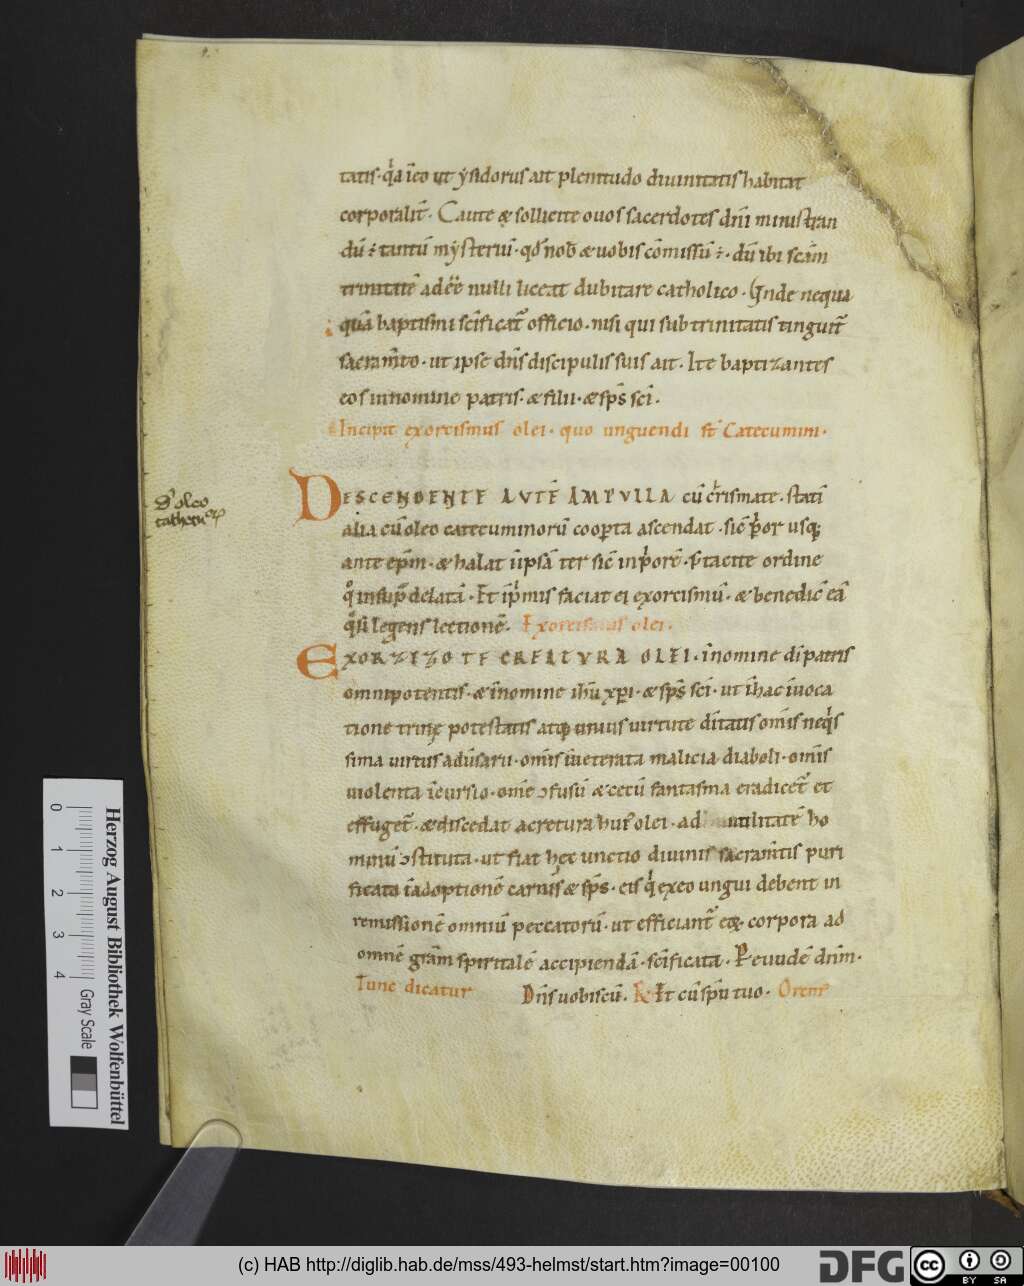 tatis · q̇a īco ut ẏsidorus ait plenitudo diuinitatis habitat
corporalit̄ · Caute & sollicite o uos sacerdotes dn̄i ministran
dū ÷ tantū mẏsteriū · qđ nob̄ & uobis cōmissū ÷ · dū ibi sc̄am
trinitatē adeē nulli liceat dubitare catholico · Unde nequa
quā baptismi sc̄ificat̄ officio · nisi qui sub trinitatis tinguit̄
sacram̄to · ut ipse dn̄s discipulis suis ait · Ite baptizantes
eos in nomine patris · & filii · & sp̄s sc̄i ·
Incipit exorcismus olei · quo unguendi st̄ Catecumini ·
DESCENDENTE AUTĒ AMPULLA cū crismate · statī
alia cū oleo catecuminorū coop̄ta ascendat · sic̄ p̄or usq;
ante ep̄m · & halat īipsā ter sic̄ in p̄orē · s̄ tacite ordine
q̊ insup̄ delatā · Et īp̄mis faciat ei exorcismū · & benedic̄ eā
q̄si legens lectionē · Exorcismus olei ·
EXORZIZO TE CREATURA OLEI · īnomine dī patris
omnipotentis · & īnomine ih̄u xp̄i · & sp̄s sc̄i · ut īhac īuoca
tione trinę potestatis atq; unius uirtute dītatis om̄is neq̇s
sima uirtus adūsarii · om̄is īueterata malicia diaboli · om̄is
uiolenta īcursio · om̄e ɔfusū & cecū fantasma eradicet̄ et
effuget̄ · & discedat a cretura hui' olei · ad utilitatē ho
minū ɔstituta · ut fiat hęc unctio diuinis sacram̄tis puri
ficata īadoptionē carnis & sp̄s · eis q̇ ex eo ungui debent in
remissionē omniū peccatorū · ut efficiant̄ eoꝝ corpora ad
omnē grām spiritalē accipiendā · sc̄ificata · P eundē dn̄m ·
Tunc dicatur Dn̄s uobiscū · R Et cū sp̄u tuo · Orem'
D' oleo
0
1
2
3
4
Gray Scale
Herzog August Bibliothek Wolfenbüttel
(c) HAB http://diglib.hab.de/mss/493-helmst/start.htm?image=00100
DFG
cc
BY SA